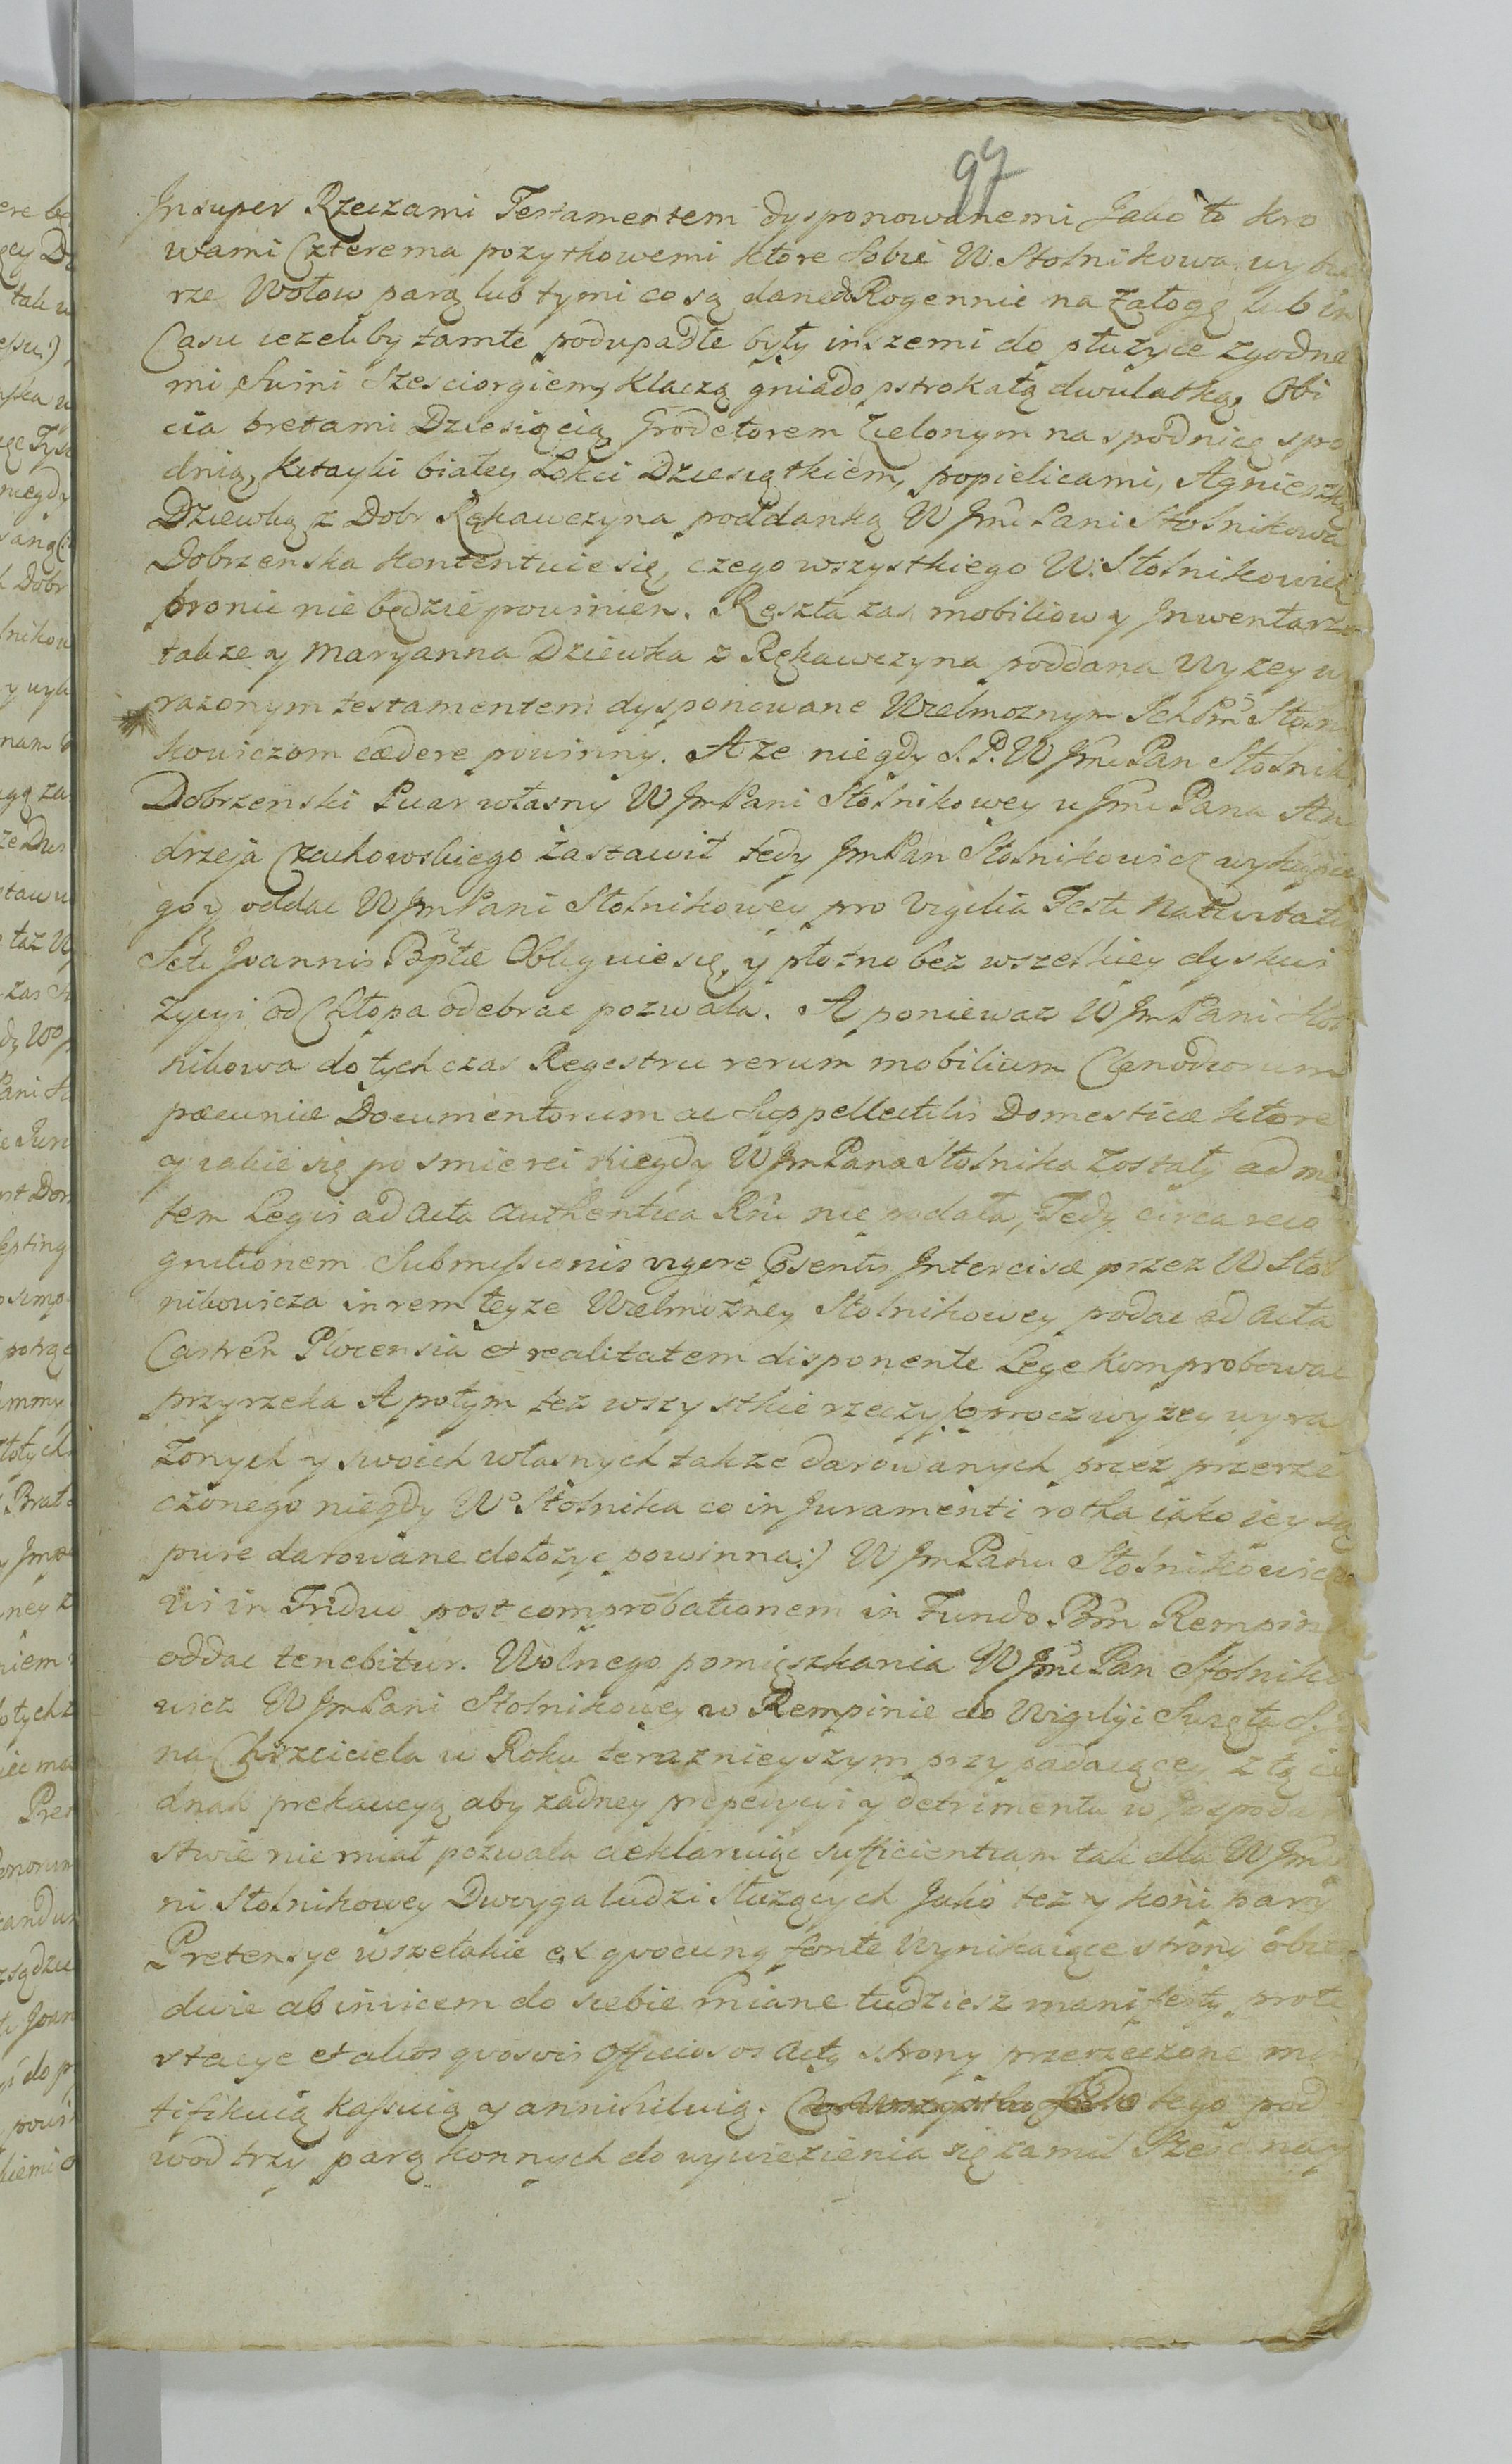 97
Insuper Rzeczami Testamentem dysponowanemi Jako to kro
wami Czterema pozytkowemi ktore Sobie W. Stolnikowa wybie
rze Wołow parą lub tymi co są dane do Rogennic na Załogę lub in
Casu iezeliby tamte podupadłe były inszemi do płużyce zgodne
mi, Swini Szesciorgiem, Klaczą gniado pstrokatą dwulatką, Obi
cia bretami Dziesięcią Grodetorem Zielonym na spodnicę spo
dnią, Kitayki białey Łokci Dziesiątkiem, popielicami, Agnieszką
Dziewką z Dobr Rękawczyna poddanką W Jmć Pani Stolnikowa
Dobrzenska kontentuie się, czego wszystkiego W: Stolnikowicz
bronic nie będzie powinien. Reszta zas mobiliow y Inwentarze
takze y Maryanna Dziewka z Rękawczyna poddana Wyzey w
razonym testamentem dysponowane Wielmoznym Ichm Stolni
kowiczom cædere powinny. A ze niegdy S. P. W Jmć Pan Stolnik
Dobrzenski Puar własny W Jm Pani Stolnikowey u Jmć Pana An
drzeja Czachowskiego Zastawił tedy Jm Pan Stolnikowicz wykupic
go y oddac W Jm Pani Stolnikowey pro Vigilia Festi Nativitatis
Scti Joannis Bptæ Obliguie się, y płotno bez wszelkiey dyskwi
zycyi od Chłopa odebrac pozwala. A poniewaz W Jm Pani Stol
nikowa do tych czas Regestru rerum mobilium Clenodiorum
pæcuniæ Documentorum ac Suppellectilis Domesticæ ktore
y iakie się po smierci niegdy W Jm Pana Stolnika Zostały ad men
tem Legis ad acta authentica Rni nie podała, Tedy circa reco
gnitionem Submissionis vigore psentis Intercisæ przez W Stol
nikowicza in rem teyze Wielmozney Stolnikowey podac ad acta
Castren Plocensia et realitatem disponente Lege Komprobowac
przyrzeka A potym tez wszystkie rzeczy (oprocz wyzey wyra
zonych y swoich własnych takze darowanych przez przerze
czonego niegdy Wo Stolnika co in Juramenti rotha iako iey są
pure darowane dołozyc powinna:) W Jm Panu Stolnikowiczo
wi in Triduo post comprobationem in Fundo Bm Rempina
oddac tenebitur. Wolnego pomięszkania W Jmć Pan Stolniko
wicz W Jm Pani Stolnikowey w Rempinie do Wigilyi Swięta S. Ja
na Chrzciciela w Roku teraznieyszym przypadaiącey z tą ie
dnak prekaucyą aby zadney prepedycyi y detrimentu w gospodar
stwie nie miał pozwala deklaruiąc sufficientiam tak dla W Jm Pa
ni Stolnikowey Dwoyga ludzi Słuzących Jako tez y koni pary
Pretensye wszelakie ex quocunq fonte Wynikaiące strony obie
dwie ab invicem do siebie miane tudziesz manifesty prote
stacye et alios quosvis Officiosos acty strony przerzeczone mor
tifikuią kassuią y annihiluią. Do tego pod
wod trzy parą konnych do wywiezienia się zamil Szesc nay